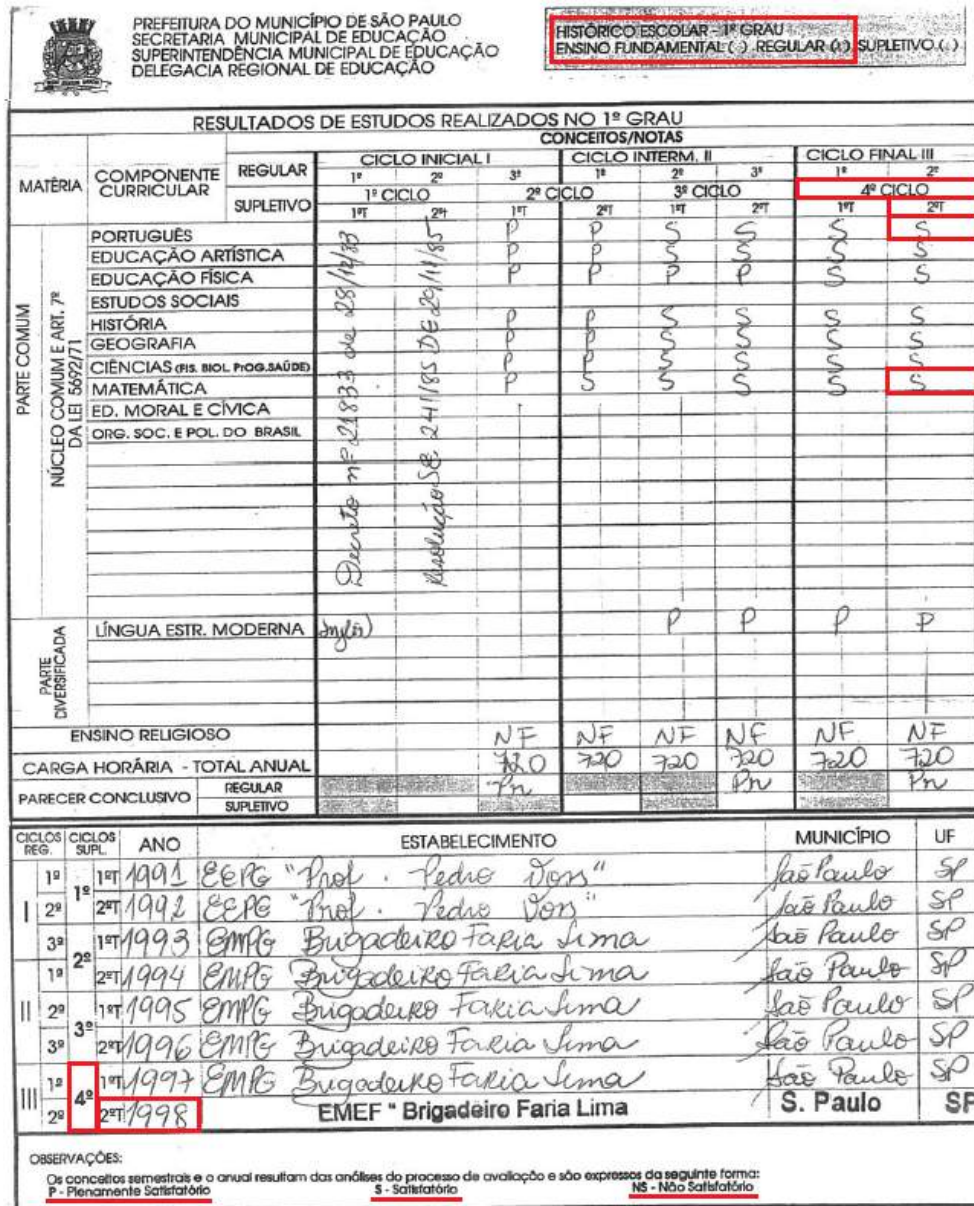 PREFEITURA DO MUNICÍPIO DE SÃO PAULO
SECRETARIA MUNICIPAL DE EDUCAÇÃO
SUPERINTENDÊNCIA MUNICIPAL DE EDUCAÇÃO
DELEGACIA REGIONAL DE EDUCAÇÃO
HISTÓRICO ESCOLAR - 1º GRAU
ENSINO FUNDAMENTAL ( ) REGULAR (X) SUPLETIVO ( )
RESULTADOS DE ESTUDOS REALIZADOS NO 1º GRAU
CONCEITOS/NOTAS
MATÉRIA COMPONENTE CURRICULAR REGULAR CICLO INICIAL I CICLO INTERM. II CICLO FINAL III
1º 2º 3º 1º 2º 3º 1º 2º
SUPLETIVO 1º CICLO 2º CICLO 3º CICLO 4º CICLO
1ºT 2ºT 1ºT 2ºT 1ºT 2ºT 1ºT 2ºT
PARTE COMUM
NÚCLEO COMUM E ART. 7º
DA LEI 5692/71
Decreto nº 21833 de 28/12/83
Resolução SE 241/85 DE 29/11/85
PORTUGUÊS P P S S S S
EDUCAÇÃO ARTÍSTICA P P S S S S
EDUCAÇÃO FÍSICA P P P P S S
ESTUDOS SOCIAIS
HISTÓRIA P P S S S S
GEOGRAFIA P P S S S S
CIÊNCIAS (FIS. BIOL. PROG.SAÚDE) P P S S S S
MATEMÁTICA P S S S S S
ED. MORAL E CÍVICA
ORG. SOC. E POL. DO BRASIL
PARTE DIVERSIFICADA
LÍNGUA ESTR. MODERNA Inglês) P P P P
ENSINO RELIGIOSO NF NF NF NF NF NF
CARGA HORÁRIA - TOTAL ANUAL 720 720 720 720 720 720
PARECER CONCLUSIVO REGULAR Pn Pn Pn
SUPLETIVO
CICLOS REG. CICLOS SUPL. ANO ESTABELECIMENTO MUNICÍPIO UF
I 1º 1º 1ºT 1991 EEPG "Prof. Pedro Vons" São Paulo SP
2º 2ºT 1992 EEPG "Prof. Pedro Vons" São Paulo SP
3º 2º 1ºT 1993 EMPG Brigadeiro Faria Lima São Paulo SP
II 1º 2ºT 1994 EMPG Brigadeiro Faria Lima São Paulo SP
2º 3º 1ºT 1995 EMPG Brigadeiro Faria Lima São Paulo SP
3º 2ºT 1996 EMPG Brigadeiro Faria Lima São Paulo SP
III 1º 4º 1ºT 1997 EMPG Brigadeiro Faria Lima São Paulo SP
2º 2ºT 1998 EMEF " Brigadeiro Faria Lima S. Paulo SP
OBSERVAÇÕES:
Os conceitos semestrais e o anual resultam das análises do processo de avaliação e são expressos da seguinte forma:
P - Plenamente Satisfatório S - Satisfatório NS - Não Satisfatório